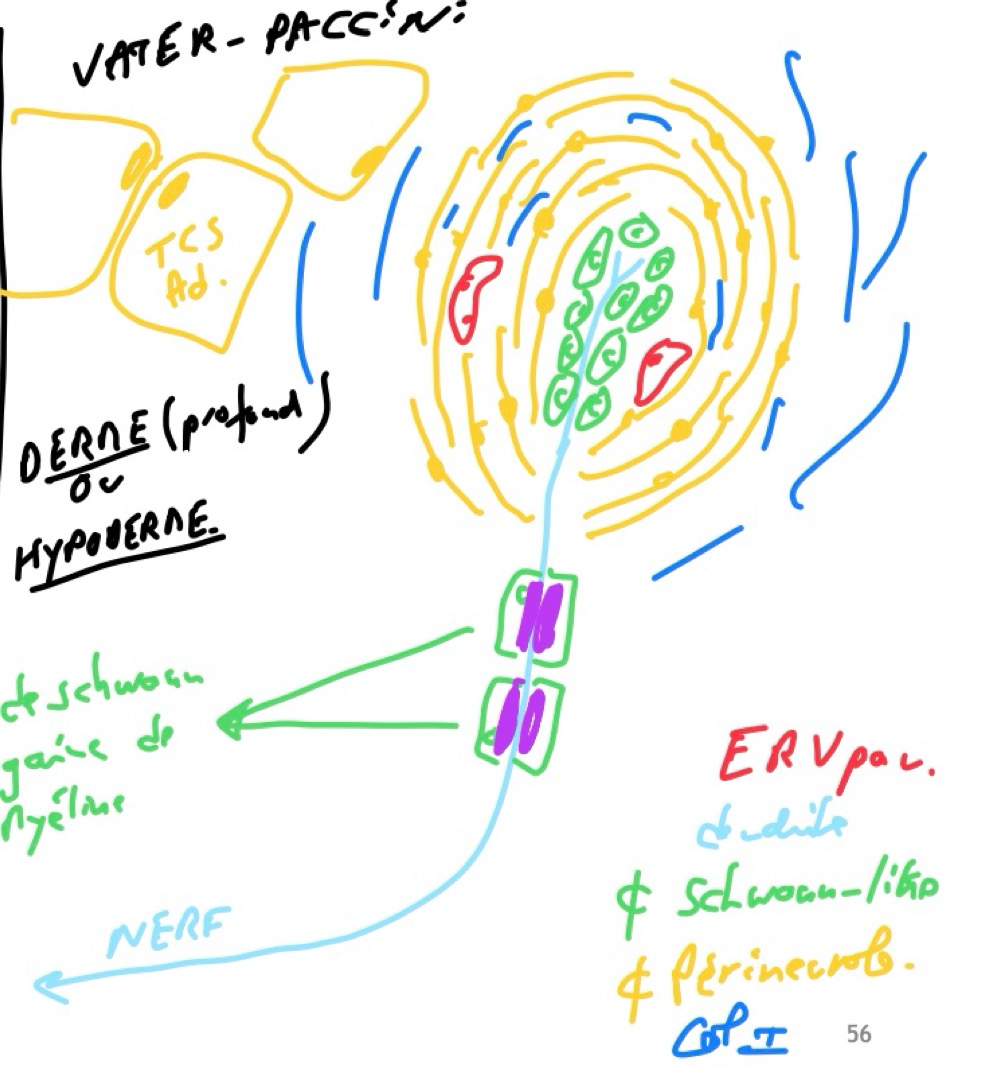 VATER - PACCINI
TCS
Ad.
DERME (profond)
ou
HYPODERME.
de schwann
gaine de
Myéline
NERF
ERV pau.
dendrite
¢ schwann-like
¢ Périneurale.
Col I
56